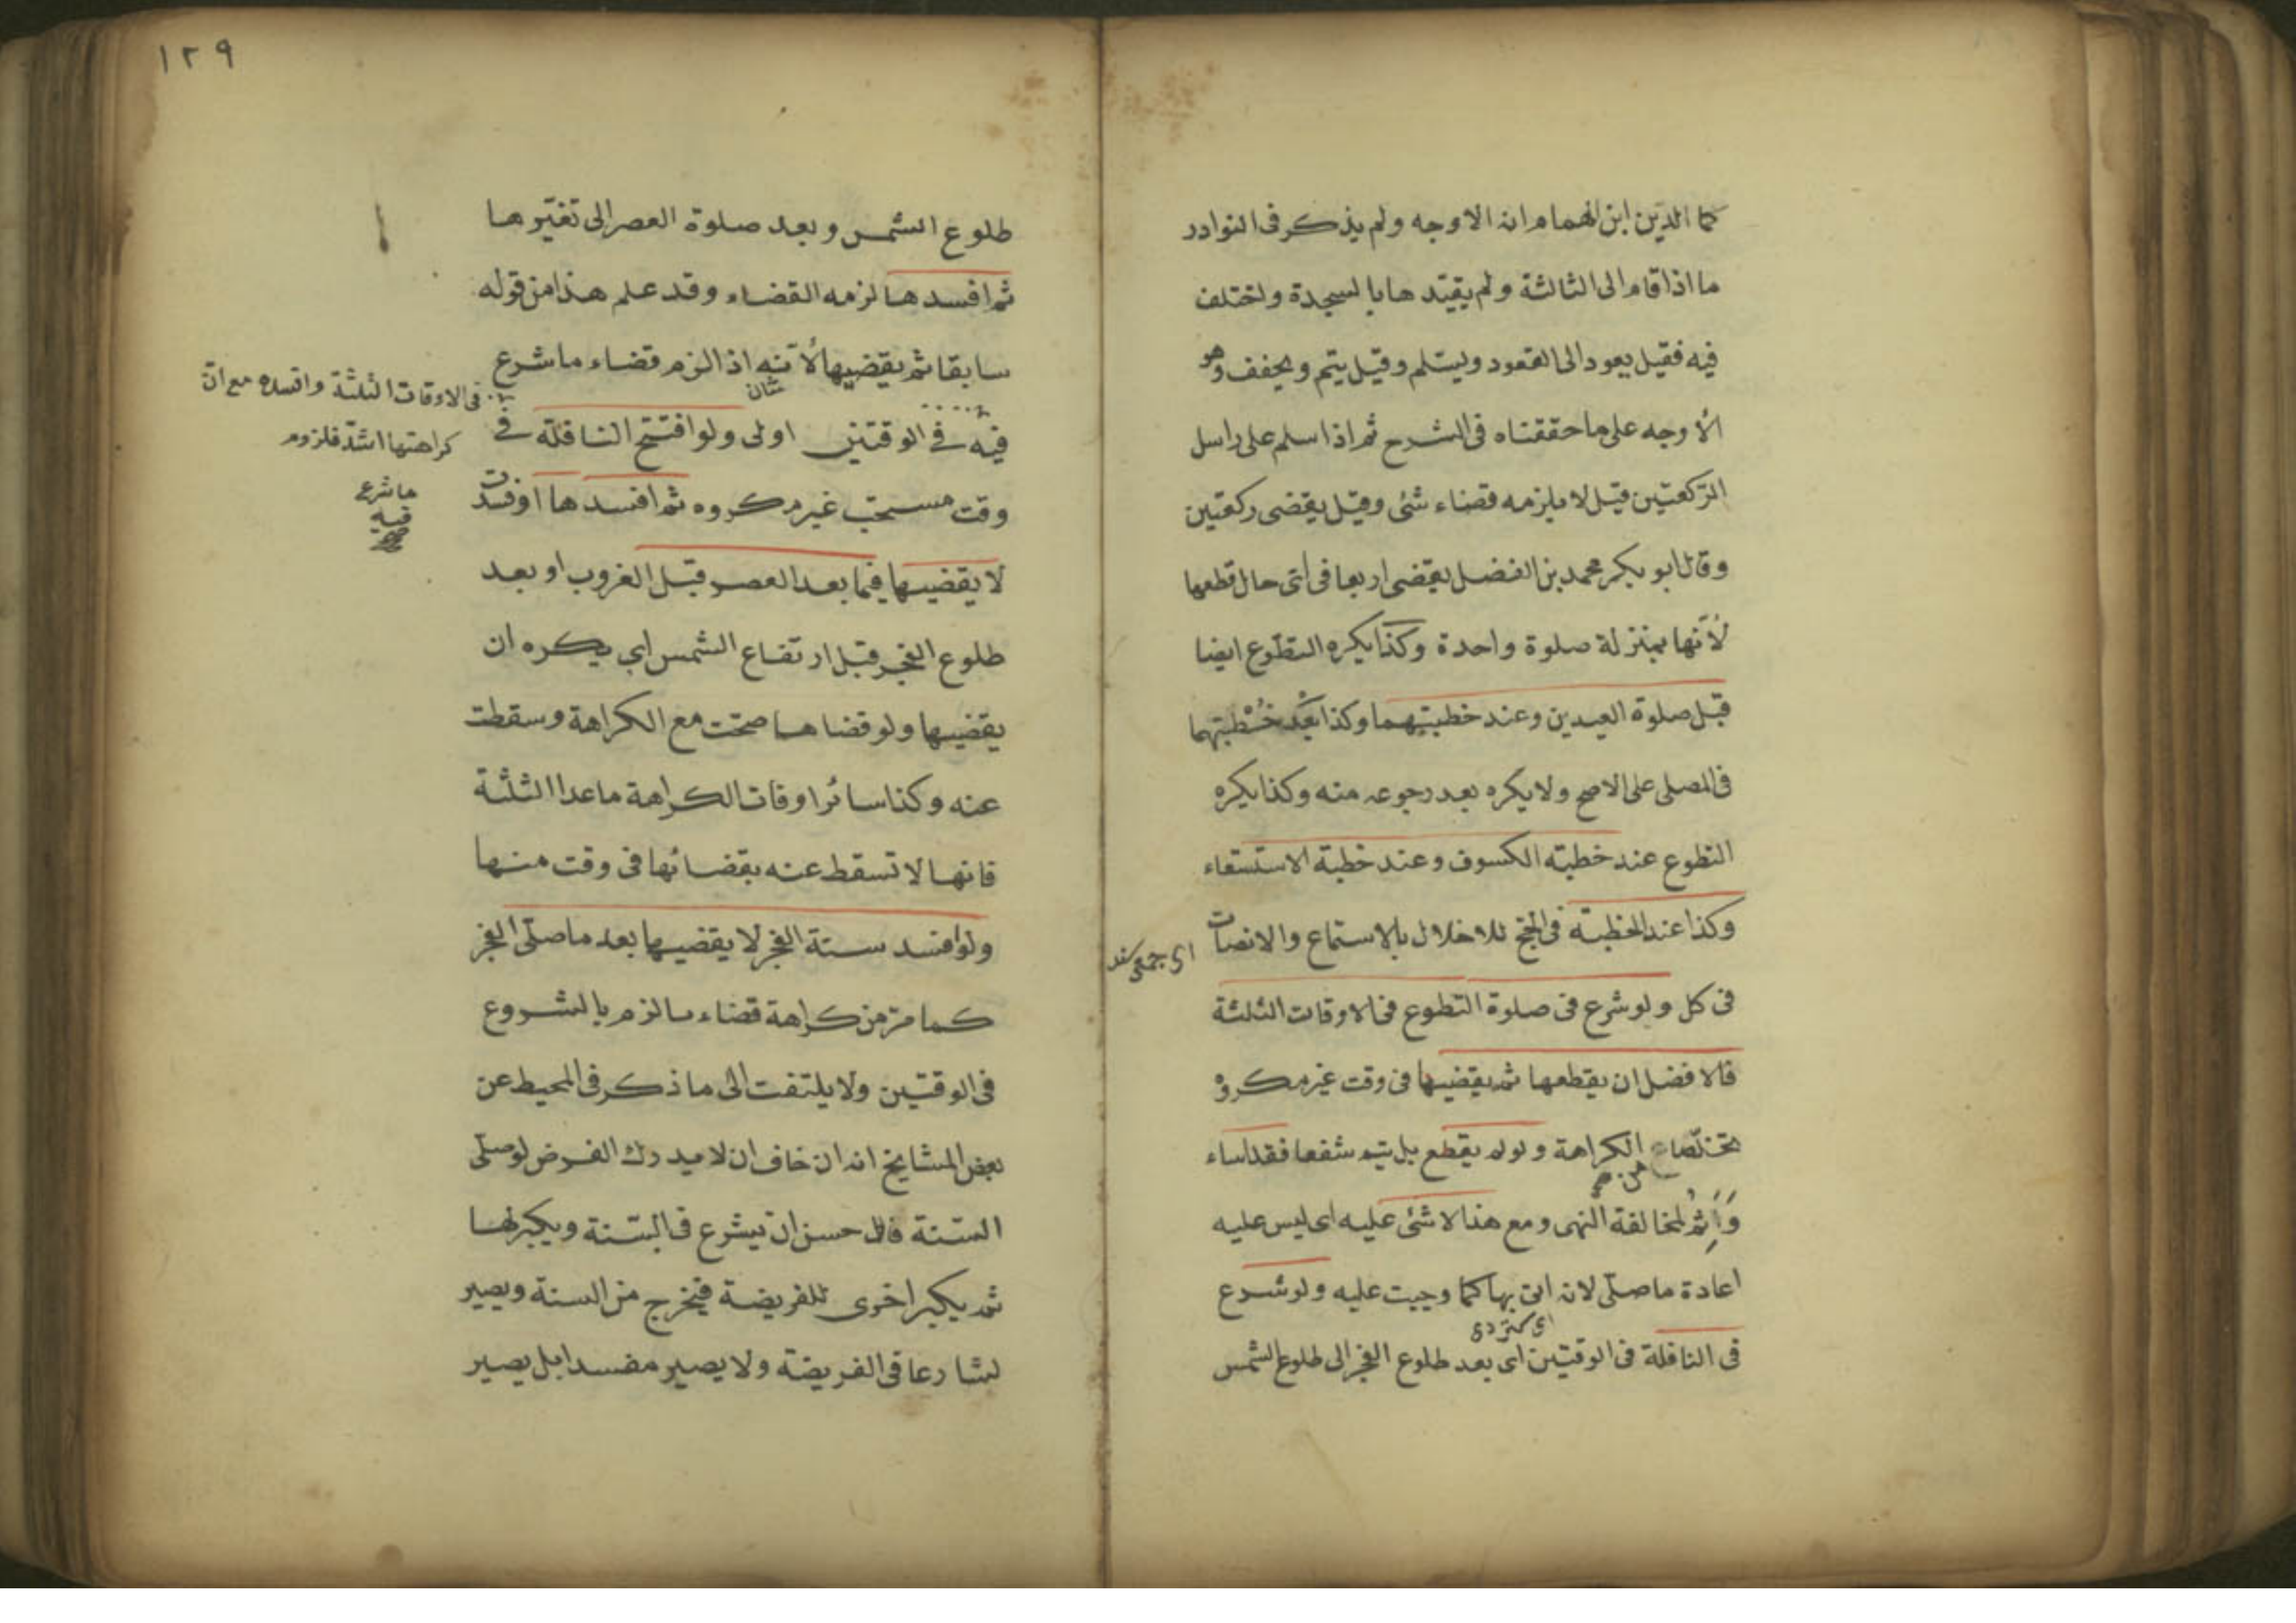 كما الدين ابن الهمام انه الاوجه ولم يذكر فى النوادر
ما اذا قام الى الثالثة ولم يقيّد ها بالسجدة واختلف
فيه فقيل يعود الى القعود ويسلّم وقيل يتم ويخفف وهو
الأوجه على ما حققناه فى الشرح ثم اذا سلم على راس
الرّكعتين قيل لا يلزمه قضاء شئ وقيل يقضى ركعتين
وقال ابو بكر محمد بن الفضل يقضى اربعا فى اىّ حال قطعها
لأنّها بمنزلة صلوة واحدة وكذا يكره التطوّع ايضا
قبل صلوة العيدين وعند خطبتهما وكذا بعْد خُطْبتهما
فى المصلى على الاصح ولا يكره بعد رجوعه منه وكذا يكره
التطوع عند خطبة الكسوف وعند خطبة الاستسقاء
وكذا عند الخطبة فى الحج للاخلال بالاستماع والانصات
فى كل ولو شرع فى صلوة التطوع فى الاوقات الثلثة
فالافضل ان يقطعها ثم يقضيها فى وقت غير مكروه
تخلّصا عن الكراهة ولو لم يقطع بل يتم شفعا فقد اساء
من
وَأَثِمُ لمخالفة النهى ومع هذا لا شئ عليه اى ليس عليه
اعادة ما صلّى لانه اتى بها كما وجبت عليه ولو شرع
فى النافلة فى الوقتين اى بعد طلوع الفجر الى طلوع الشمس
١٢٩
طلوع الشمس وبعد صلوة العصر الى تغيّرها
ثم افسدها لزمه القضاء وقد علم هذا من قوله
سابقا ثم يقضيها لأنّه اذا لزم قضاء ما شرع
فى الاوقات الثلثة وافسده مع انّ
كراهتها اشدّ فلزوم
ما شرع
فيه
فيه فى الوقتين اولى ولو افتتح النافلة فى
وقت مستحب غير مكروه ثم افسدها او فسدت
لا يقضيها فيما بعد العصر قبل الغروب او بعد
طلوع الفجر قبل ارتفاع الشمس اى يكره ان
يقضيها ولو قضاها صحّت مع الكراهة وسقطت
عنه وكذا سائر اوقات الكراهة ما عدا الثلثة
فانها لا تسقط عنه بقضائها فى وقت منها
ولو افسد سنة الفجر لا يقضيها بعد ما صلّى الفجر
كما مرّ من كراهة قضاء ما لزم بالشروع
فى الوقتين ولا يلتفت الى ما ذكر فى المحيط عن
بعض المشايخ انه ان خاف ان لا يدرك الفرض لو صلّى
السّنة فالاحسن ان يشرع فى السّنة ويكبر لها
ثم يكبر اخرى للفريضة فيخرج من السنة ويصير
شارعا فى الفريضة ولا يصير مفسدا بل يصير